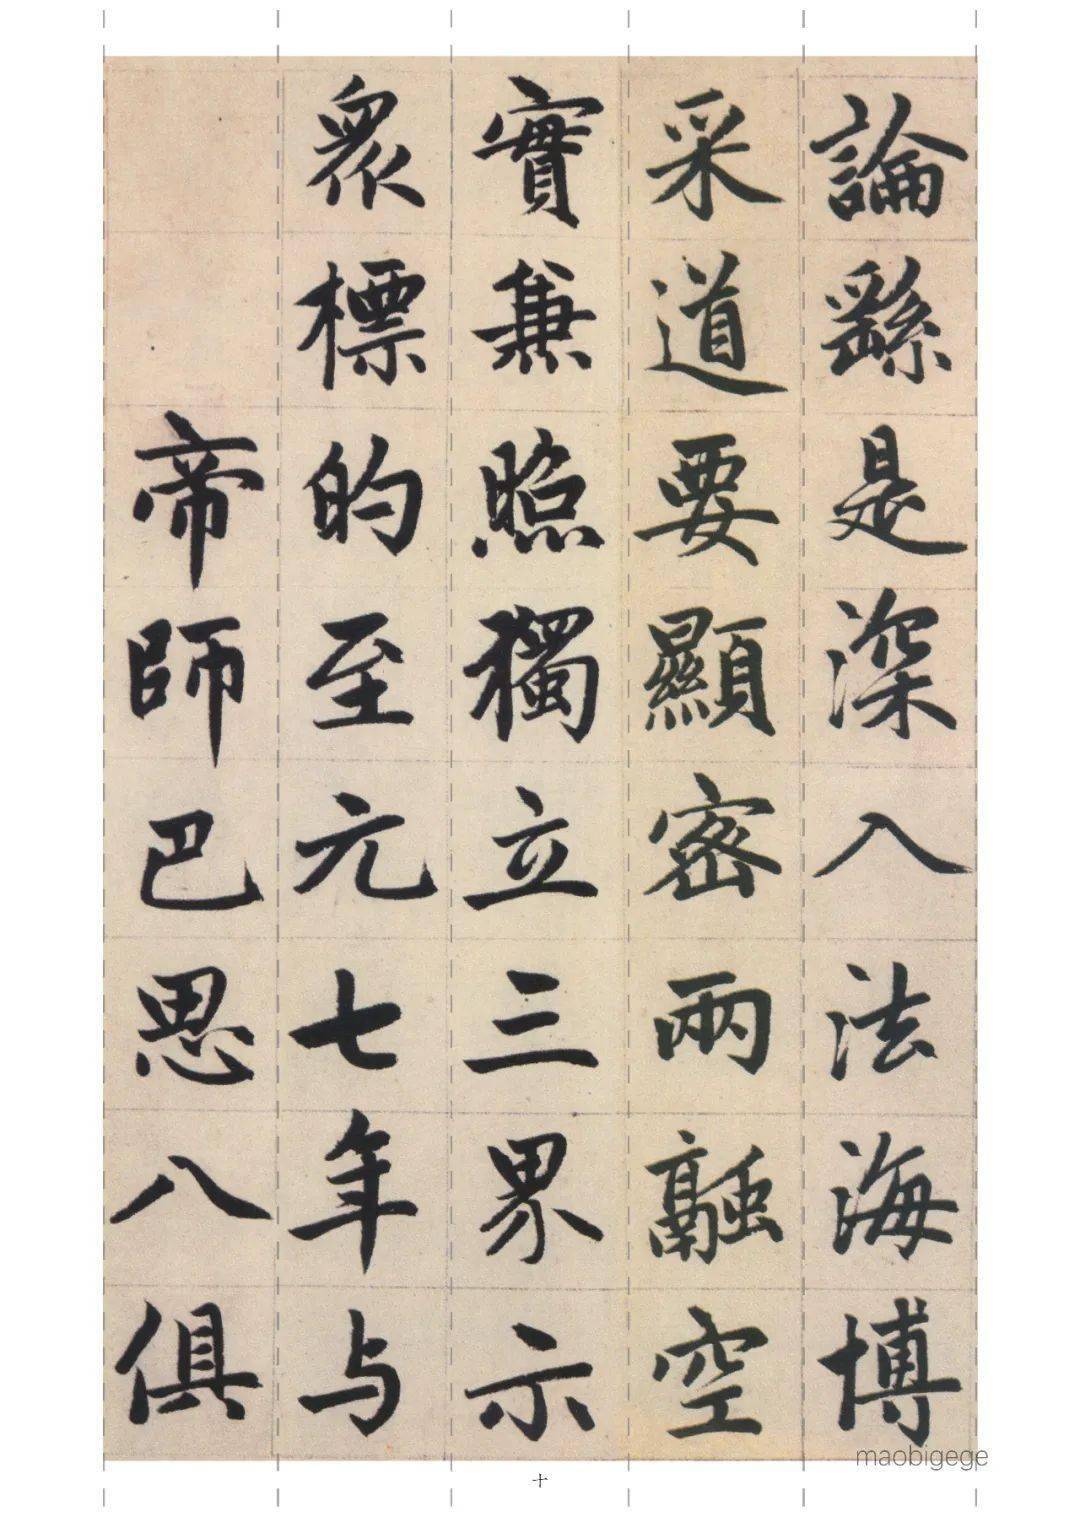 論繇是深入法海博
采道要顯密兩融空
實兼照獨立三界示
衆標的至元七年与
帝師巴思八俱
maobigege
十